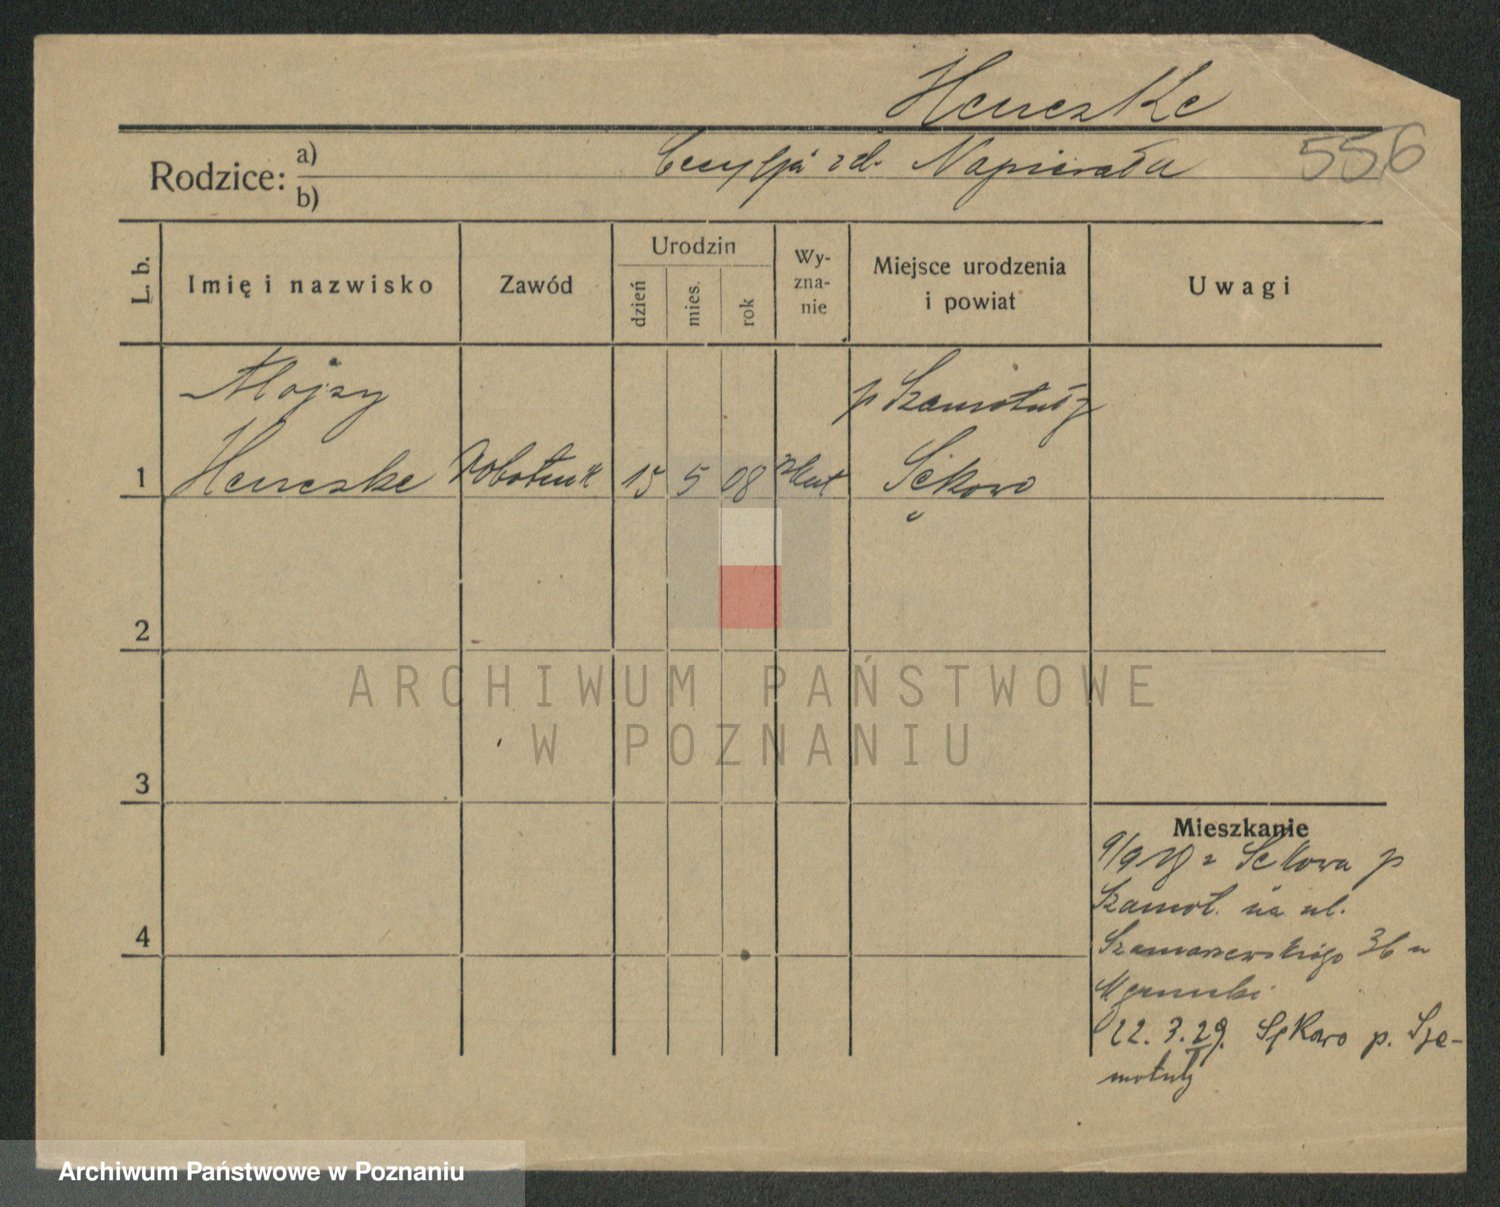 Heneszke
556
Rodzice: a) Cecylja zd. Napierała
b)
L. b.
Imię i nazwisko
Zawód
Urodzin
dzień
mies.
rok
Wy-
zna-
nie
Miejsce urodzenia
i powiat
Uwagi
Alojzy
p Szamotuły
1 Heneszke Robotnik 15 5 08 Sękowo
2
ARCHIWUM PAŃSTWOWE
W POZNANIU
3
Mieszkanie
9/9 28 z Sękowa p
Szamot. na ul.
Szamarzewskiego 36 u
4
22.3.29. Sękowo p. Sza-
motuły
Archiwum Państwowe w Poznaniu